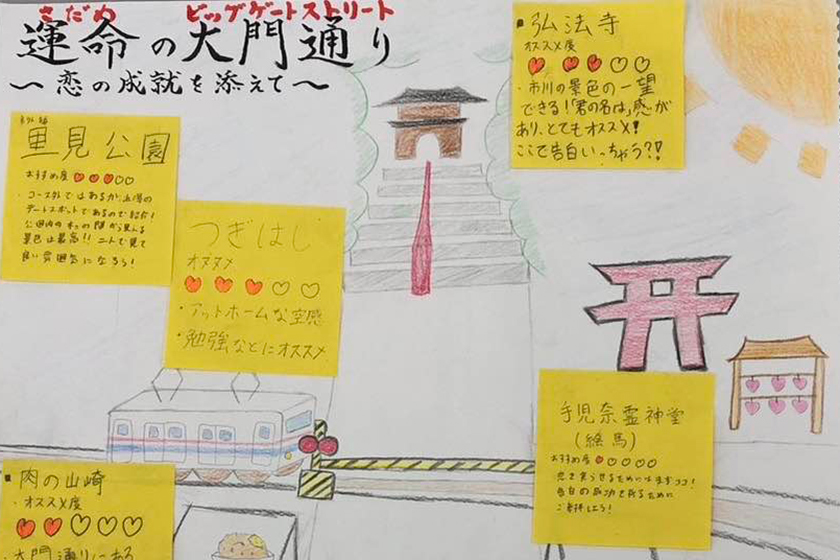 さだめ ビッグゲートストリート
運命の大門通り
～恋の成就を添えて～
里見公園
おすすめ度
コース外ではあるが
デートスポットであるので紹介!
景色は最高!! 二人で見て
良い雰囲気になろう!
つぎはし
オススメ
・アットホームな空感
・勉強などにオススメ
弘法寺
オススメ度
・市川の景色の一望
できる!「君の名は」感が
あり、とてもオススメ!
ここで告白いっちゃう?!
手児奈霊神堂
(絵馬)
おすすめ度
恋を実らせるためにはまずココ!
告白の成功を祈るために
肉の山崎
・オススメ度
・大門通りにある